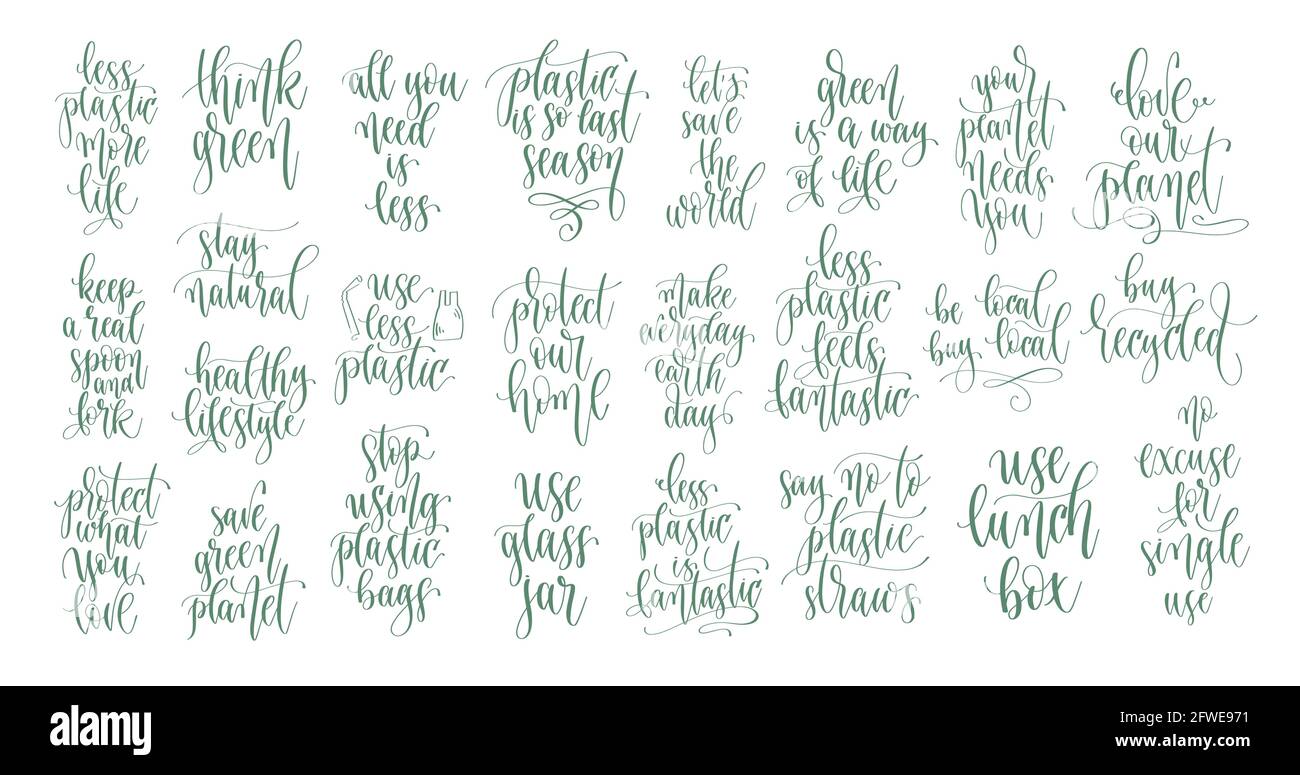 less
plastic
more
life
think
green
all you
need
is
less
plastic
is so last
season
let's
save
the
world
green
is a way
of life
your
planet
needs
you
love
our
planet
keep
a real
spoon
and
fork
stay
natural
healthy
lifestyle
use
less
plastic
protect
our
home
make
everyday
earth
day
less
plastic
feels
fantastic
be local
buy local
buy
recycled
protect
what
you
love
save
green
planet
stop
using
plastic
bags
use
glass
jar
less
plastic
is
fantastic
say no to
plastic
straws
use
lunch
box
no
excuse
for
single
use
alamy
Image ID: 2FWE971
www.alamy.com